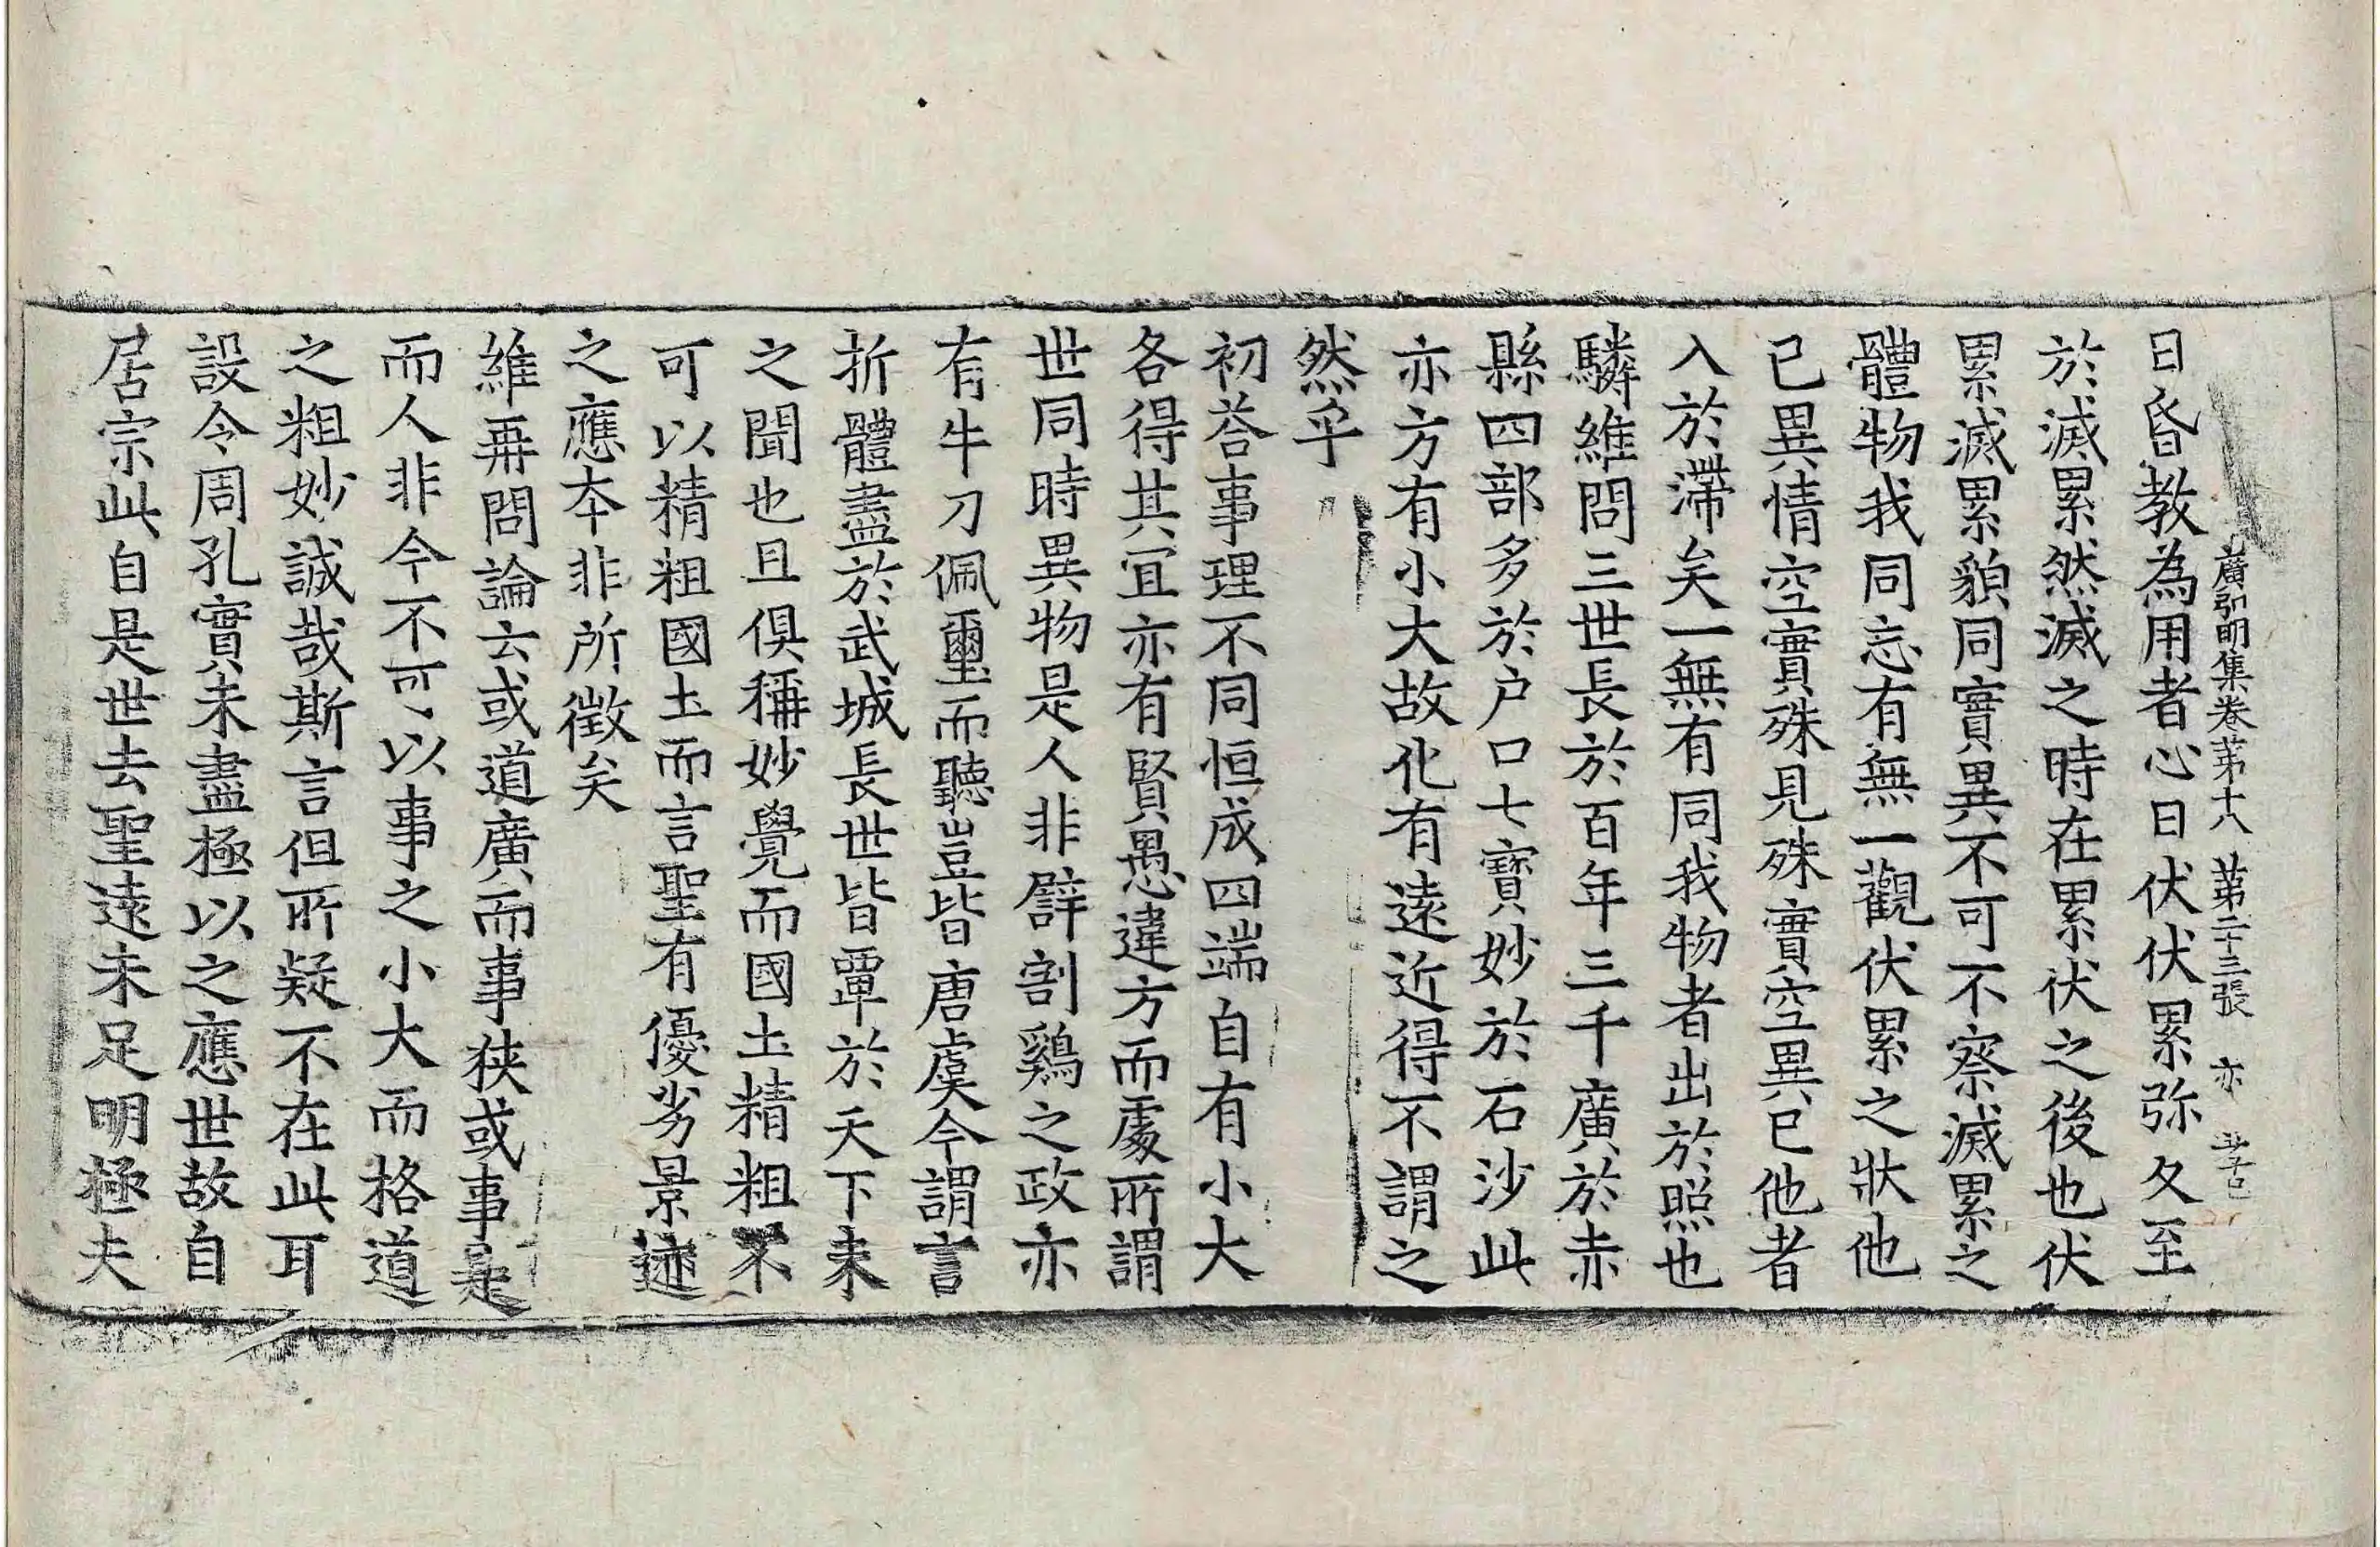 日昏教為用者心日伏伏累弥久至
廣弘明集卷第十八 第二十三張 亦
於滅累然滅之時在累伏之後也伏
累滅累貌同實異不可不察滅累之
體物我同忘有無一觀伏累之狀他
已異情空實殊見殊實空異已他者
入於滯矣一無有同我物者出於照也
驎維問三世長於百年三千廣於赤
縣四部多於户口七寶妙於石沙此
亦方有小大故化有遠近得不謂之
然乎
初荅事理不同恒成四端自有小大
各得其宜亦有賢愚違方而處所謂
世同時異物是人非譬割鷄之政亦
有牛刀佩璽而聽豈皆唐虞今謂言
折體盡於武城長世皆覃於天下未
之聞也且俱稱妙覺而國土精粗不
可以精粗國土而言聖有優劣景迹
之應本非所徵矣
維再問論云或道廣而事狹或事是
而人非今不可以事之小大而格道
之粗妙誠哉斯言但所疑不在此耳
設令周孔實未盡極以之應世故自
居宗此自是世去聖遠未足明極夫